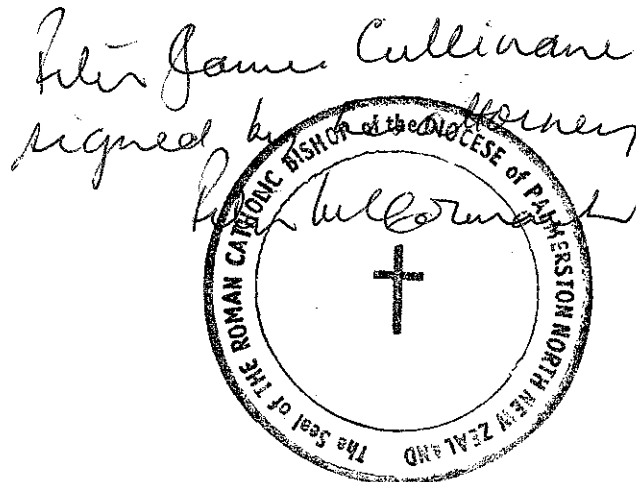 Peter James Cullinane
signed by his attorney
Peter McCormack
The Seal of THE ROMAN CATHOLIC BISHOP of the DIOCESE of PALMERSTON NORTH NEW ZEALAND